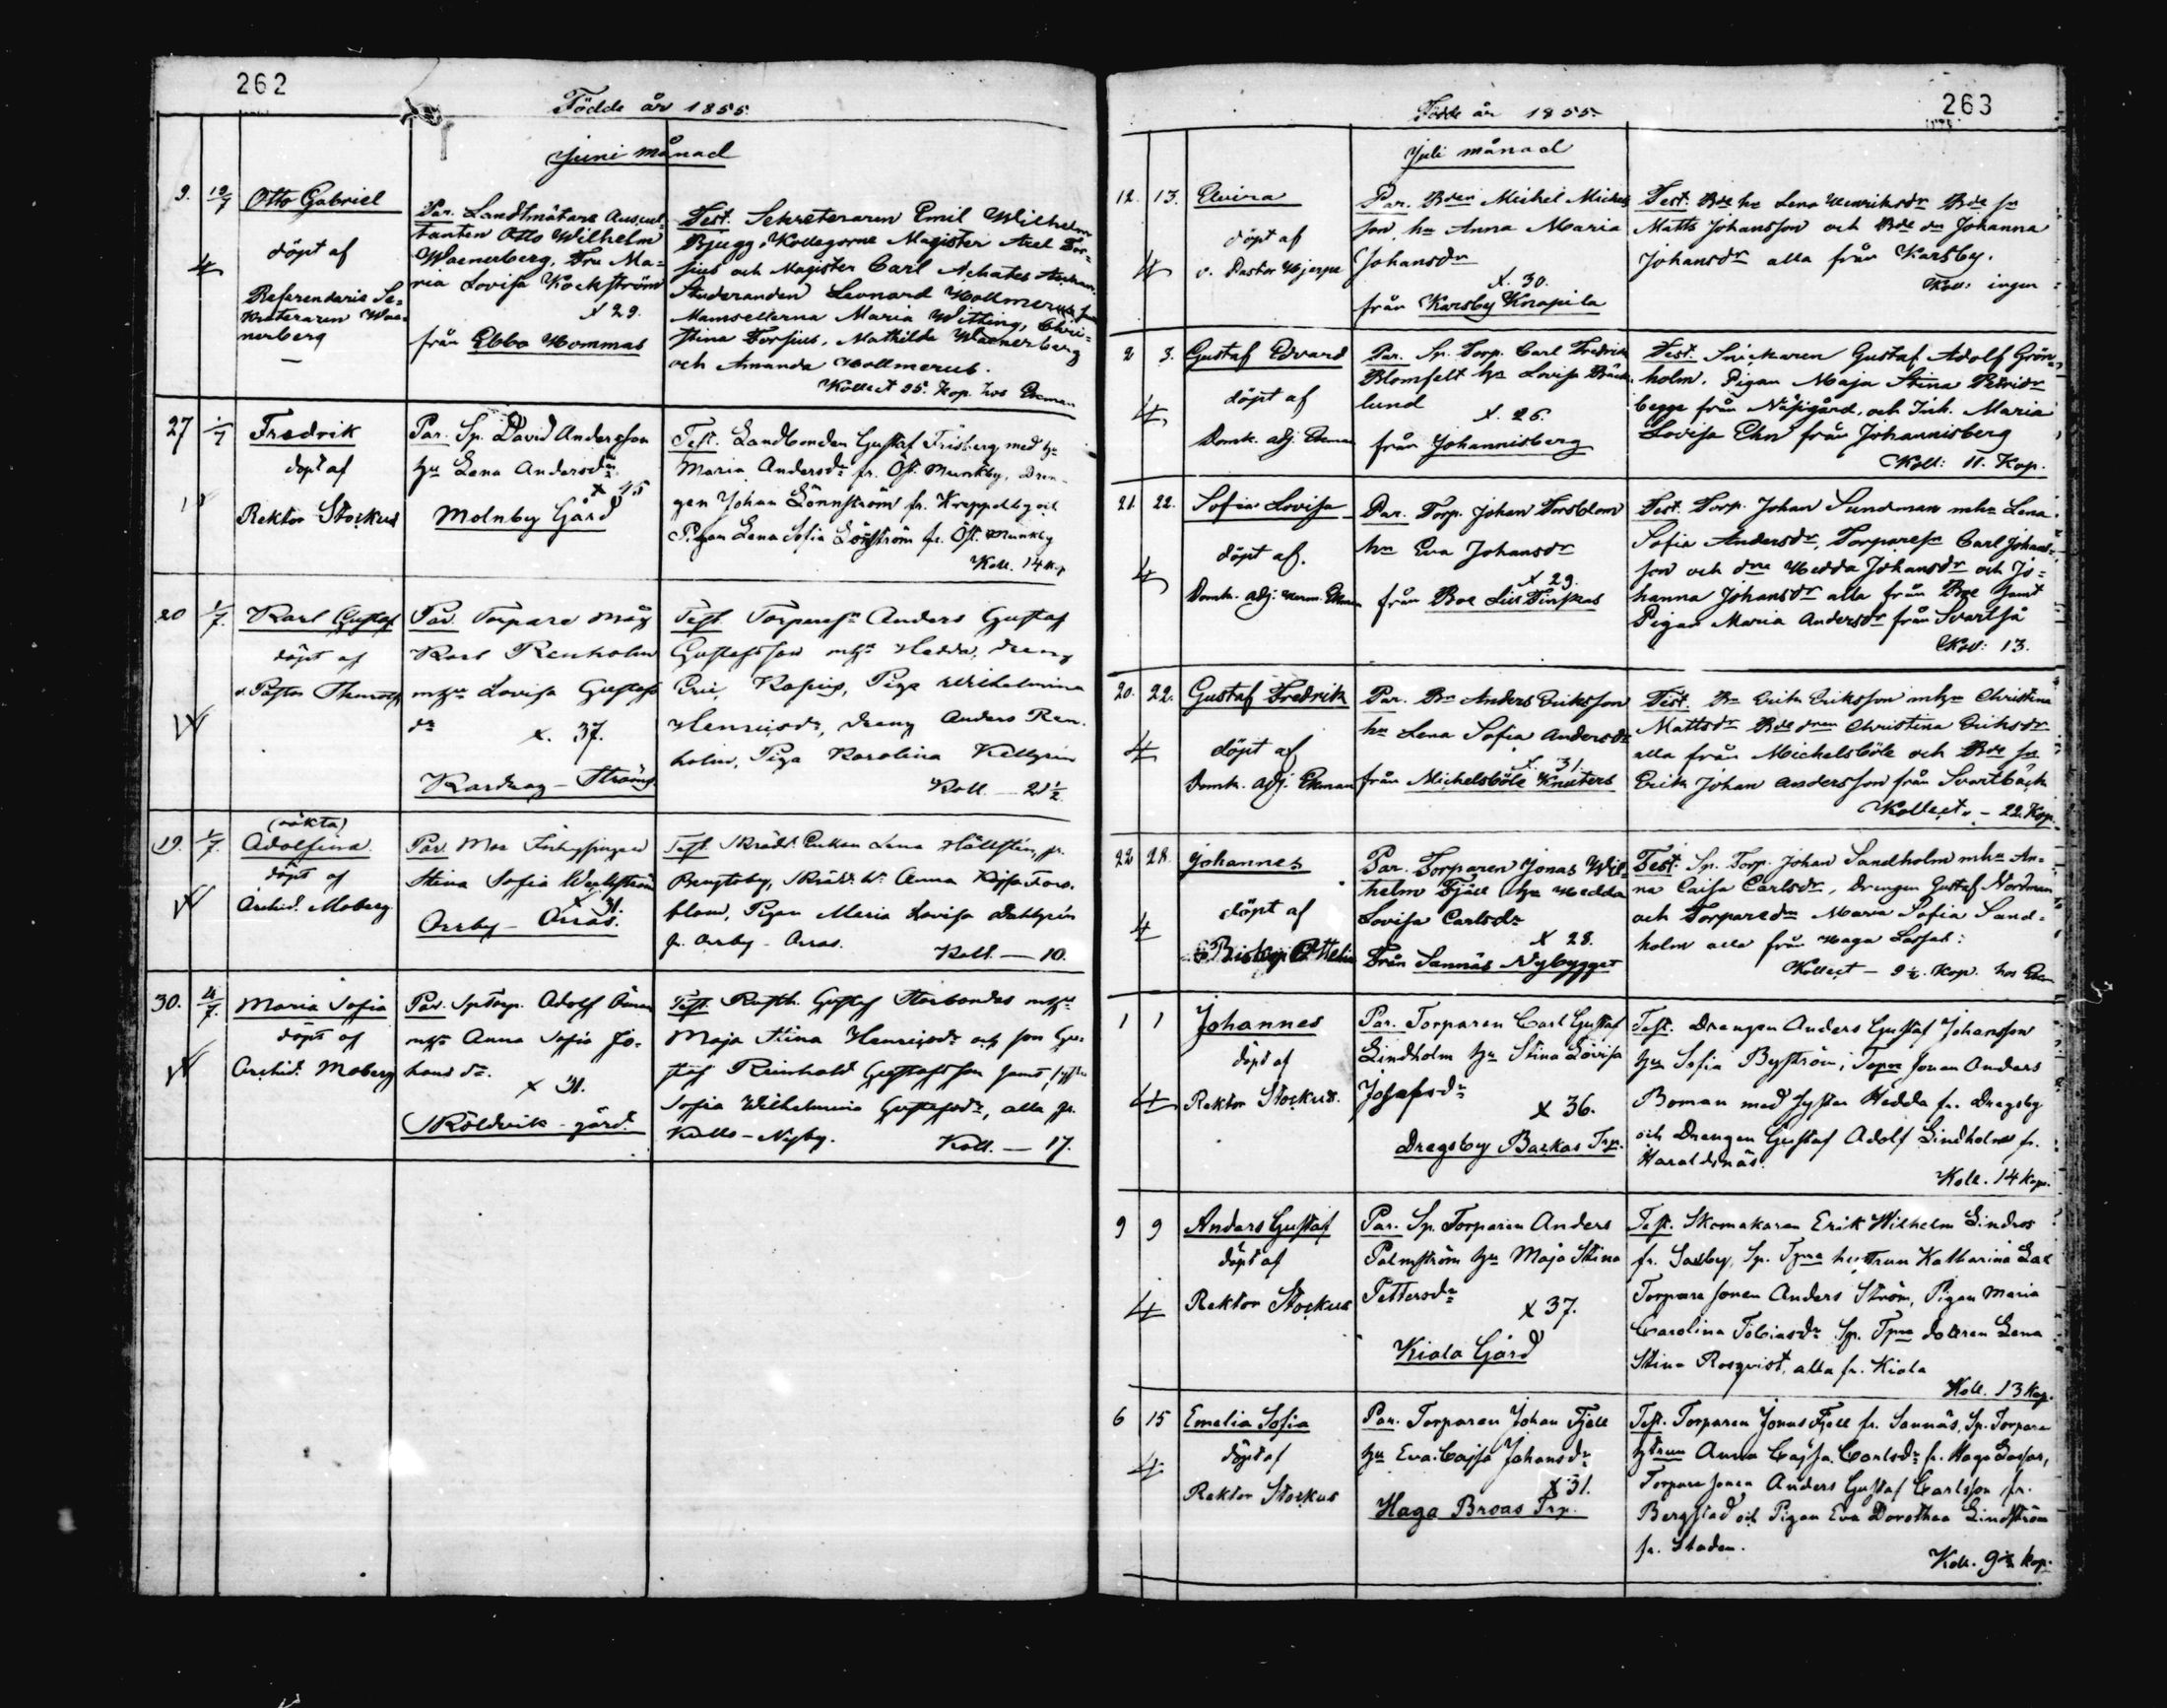 262
Födde år 1855.
Juni månad
9. 19/7 Otto Gabriel
döpt af
Referendarie Se=
kreteraren Wae=
nerberg
Par. Landtmätare Auscul=
tanten Otto Wilhelm
Waenerberg, Fru Ma=
ria Lovisa Kockström
x 29.
från Ebbo Hommas
Test. Sekreteraren Emil Wilhelm
Bjugg, Kollegorne Magister Axel For=
sius och Magister Carl Achates
Studeranden Leonard Hollmerus
Mamsellerna Maria Withing, Chri=
stina Forsius, Mathilda Waenerberg
och Amanda Hollmerus.
Kollect 25. Kop. hos Ekman
27 1/7 Fredrik
döpt af
Rektor Stockus
Par. Sp. David Andersson
hu Lena Andersdr
x 45
Molnby Gård
Test. Landbonden Gustaf Frisberg med hu
Maria Andersdr fr. Öst. Munkby, Dren-
gen Johan Lönnström fr. Kroppelby och
Pigan Lena Sofia Löfström fr. Öst. Munkby
Koll. 14 Kop
20 1/7. Karl Gustaf
döpt af
v. Pastor
Par. Torpare måg
Karl Renholm
mhu Lovisa Gustafs
dr
x. 37.
Kardrag - Ströms
Test. Torparesn Anders Gustaf
Gustafsson mhu Hedda, dreng
Eric Kapius, Piga Wilhelmina
Henricsdr, dreng Anders Ren-
holm, Piga Karolina Kellgrén
Koll. — 21 1/2.
19. 1/7. (oäkta)
Adolfina
döpt af
Archid. Moberg
Par. Mor Inhysspigan
Stina Sofia
x 31.
Orrby - Orras.
Test. Skrädd. Enkan Lena Hällsten, fr.
Bengtsby, Skrädd. hu Anna Kajsa Fors-
blom, Pigan Maria Lovisa Dahlgrén
fr. Orrby - Orras.
Koll. — 10.
30. 4/7. Maria Sofia
döpt af
Archid. Moberg
Par. Sp Torp. Adolf
mhu Anna Sofia Jo=
hans dr.
x 31.
Sköldvik - gård.
Test. Rusth. Gustaf Storbondas mhu
Maja Stina Henricsdr och son Gu=
staf Reinhold Gustafsson samt
Sofia Wilhelmina Gustafsdr, alla fr.
Kullo - Nyby.
Koll. — 17.
263
Födde år 1855.
Juli månad
12. 13. Elvira
döpt af
v. Pastor Hjerpe
Par. Bden Michel Michels
son, hu Anna Maria
Johansdr
x. 30.
från Karsby Knapila
Test. Bde hu Lena Henriksdr Bde sn
Matts Johansson och Bde dn Johanna
Johansdr alla från Karsby.
Koll: ingen
2 3. Gustaf Edvard
döpt af
Domk. adj. Ekman
Par. Sp. Torp. Carl Fredrik
Blomfelt hu Lovisa Bäck-
lund
x. 26.
från Johannisberg
Test. Snickaren Gustaf Adolf Grön=
holm, Pigan Maja Stina Petridr
begge från Näsegård, och Inh. Maria
Lovisa Ehn från Johannisberg
Koll: 11. Kop.
21. 22. Sofia Lovisa
döpt af.
Domk. adj. Herm. Ekman
Par. Torp. Johan Forsblom
hu Eva Johansdr
x 29.
från Boe
Test. Torp. Johan Sundman mhu Lena
Sofia Andersdr, Torparesn Carl Johans=
son och dne Hedda Johansdr och Jo=
hanna Johansdr alla från Boe samt
Pigan Maria Andersdr från Svartså
Koll: 13.
20. 22. Gustaf Fredrik
döpt af
Domk. adj. Ekman
Par. Bn Anders Eriksson
hu Lena Sofia Andersdr
x. 31.
från Michelsböle Knuters
Test. Bn Erik Eriksson mhu Christina
Mattsdr Bde dren Christina Eriksdr
alla från Michelsböle och Bde sn
Erik Johan Andersson från Svartbäck
Kollect. - 22. Kop.
22 28. Johannes
döpt af
Biskop Ottelin
Par. Torparen Jonas Wil=
helm Fjäll hu Hedda
Lovisa Carlsdr
x 28.
Från Sannäs Nybygget
Test. Sp. Torp. Johan Sandholm mhu An=
na Caisa Carlsdr, Drengen Gustaf Nordman
och Torparedn Maria Sofia Sand=
holm alla från Haga Lassas:
Kollect - 9 1/2. Kop. hos Ekman
1 1 Johannes
döpt af
Rektor Stockus.
Par. Torparen Carl Gustaf
Lindholm hu Stina Lovisa
Josefsdr
x 36.
Dragsby Backas Trp.
Test. Drengen Anders Gustaf Johansson
hu Sofia Byström, Topre sonen Anders
Boman med syster Hedda fr. Dragsby
och Drengen Gustaf Adolf Lindholm fr.
Haraldsnäs.
Koll. 14 Kop.
9 9 Anders Gustaf
döpt af
Rektor Stockus
Par. Sp. Torparen Anders
Palmström hu Maja Stina
Pettersdr
x 37.
Kiala Gård
Test. Skomakaren Erik Wilhelm Lindros
fr. Saxby, Sp. Tpre hustrun Katharina
Torpare sonen Anders Ström, Pigan Maria
Carolina Tobiasdr Sp. Tpre dottren Lena
Stina Rosqvist, alla fr. Kiala
Koll. 13 Kop.
6 15 Emelia Sofia
döpt af
Rektor Stockus
Par. Torparen Johan Fjell
hu Eva Cajsa Johansdr
x 31.
Haga Broas Trp.
Test. Torparen Jonas Fjell fr. Sannäs, Sp. Torpare
htrun Anna Cajsa Carlsdr fr. Haga Lassas,
Torpare sonen Anders Gustaf Carlsson fr.
Bergstad och Pigan Eva Dorothea Lindström
fr. Staden.
Koll. 9 1/2 kop.